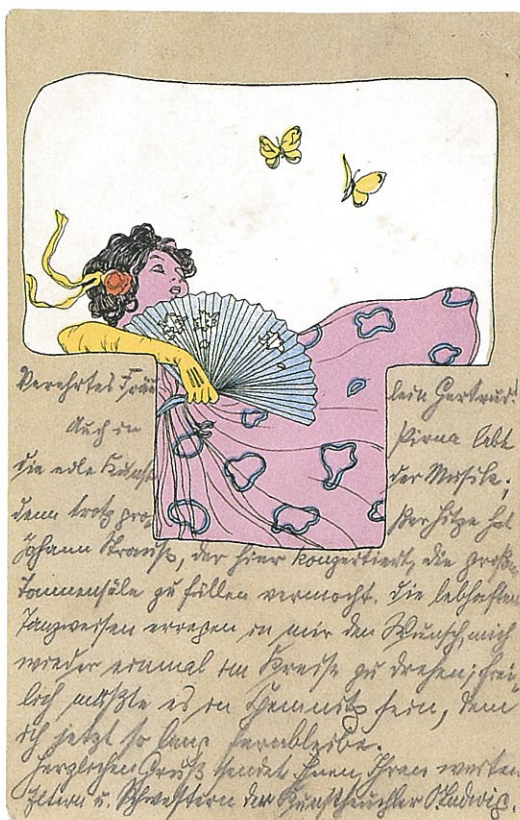 Verehrtes Fräulein Gertrud!
Auch in Pirna lebt
die edle Kunst der Musik;
denn trotz großer Hitze hat
Johann Strauß, der hier konzertiert, die großen
Tannensäle zu füllen vermocht. Die lebhaften
Tanzweisen erregen in mir den Wunsch, mich
wieder einmal im Kreise zu drehen; frei-
lich müßte es in Chemnitz sein, dem
ich jetzt so lang fernbleibe.
Herzlichen Gruß sendet Ihnen, Ihren werten
Eltern u. Schwestern der